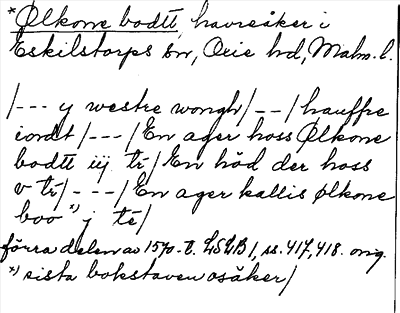 *Ølkone bodtt, havreåker i
Eskilstorps sn, Oxie hd, Malm. l.
/--- y westre wongh/--/hauffre
iordt/---/En ager hoss Ølkone
bodtt iij tr/En höd der hoss
v tr/---/En ager kallis ølkone
boo *) j tr/
förra delen av 1570-t. LSLB 1, ss. 417, 418. orig.
*) sista bokstaven osäker/